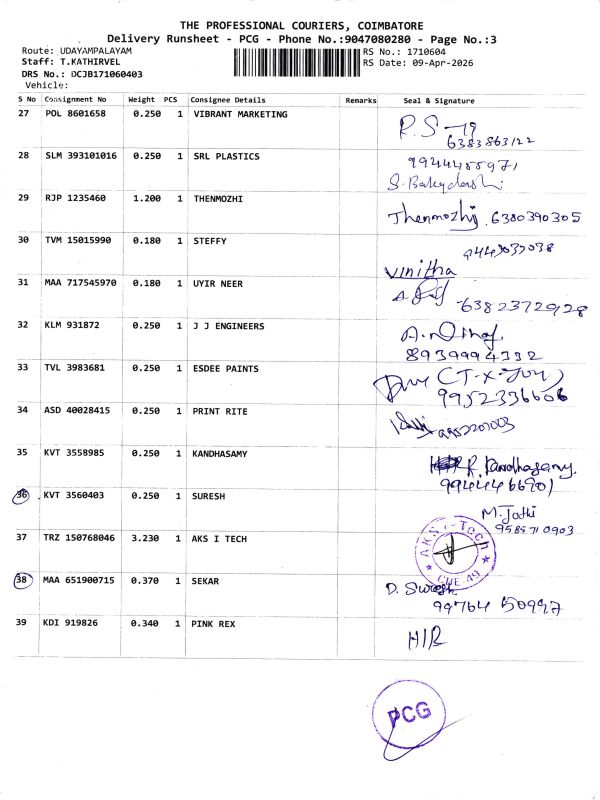 THE PROFESSIONAL COURIERS, COIMBATORE
Delivery Runsheet - PCG - Phone No.:9047080280 - Page No.:3
Route: UDAYAMPALAYAM
RS No.: 1710604
Staff: T.KATHIRVEL
RS Date: 09-Apr-2026
DRS No.: DCJB171060403
Vehicle:
S No Consignment No Weight PCS Consignee Details Remarks Seal & Signature
27 POL 8601658 0.250 1 VIBRANT MARKETING
R.S
6383863122
28 SLM 393101016 0.250 1 SRL PLASTICS
29 RJP 1235460 1.200 1 THENMOZHI
Thenmozhi 6380390305
30 TVM 15015990 0.180 1 STEFFY
Vinitha
31 MAA 717545970 0.180 1 UYIR NEER
6382372928
32 KLM 931872 0.250 1 J J ENGINEERS
8939994332
33 TVL 3983681 0.250 1 ESDEE PAINTS
9952336606
34 ASD 40028415 0.250 1 PRINT RITE
35 KVT 3558985 0.250 1 KANDHASAMY
R. Kandhasamy
9944466901
36 KVT 3560403 0.250 1 SURESH
M. Jothi
9585710903
37 TRZ 150768046 3.230 1 AKS I TECH
AKS i-Tech
CBE-49
38 MAA 651900715 0.370 1 SEKAR
D. Suresh
99764 50997
39 KDI 919826 0.340 1 PINK REX
H/R
PCG